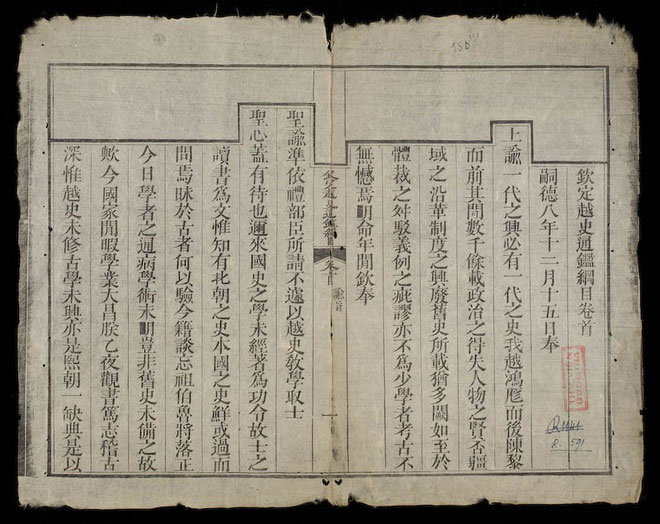 欽定越史通鑑綱目卷首
嗣德八年十二月十五日奉
上諭一代之興必有一代之史我越鴻厖而後陳黎
而前其間數千餘載政治之得失人物之賢否疆
域之沿革制度之興廢舊史所載猶多闕如至於
體裁之舛駁義例之疵謬亦不為少學者考古不
無憾焉明命年間欽奉
聖諭準依禮部臣所請不遽以越史教學取士
聖心蓋有待也邇來國史之學未經著為功令故士之
讀書為文惟知有北朝之史本國之史鮮或過而
問焉昧於古者何以驗今籍談忘祖伯魯將落正
今日學者之通病學術未明豈非舊史未備之故
歟今國家閒暇學業大昌朕乙夜觀書篤志稽古
深惟越史未修古學未興亦是熙朝一缺典是以
卷首
諭旨
一
150
R. 591